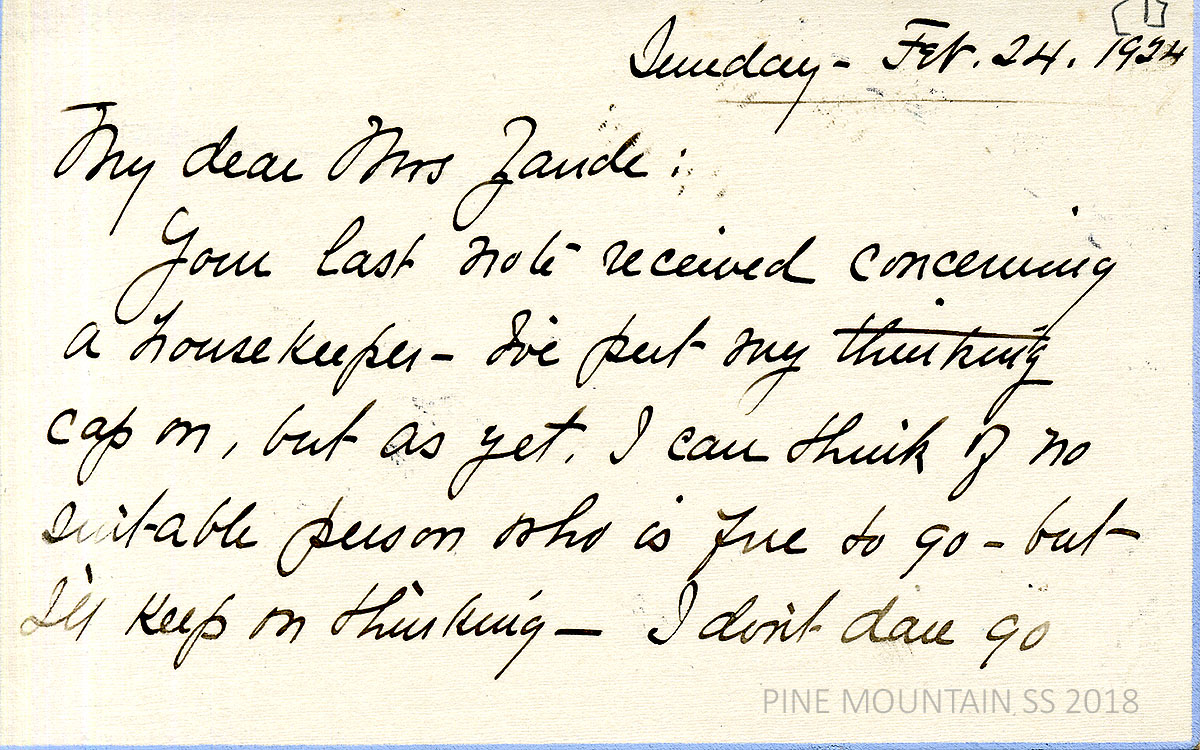 Sunday - Feb. 24. 1924
My dear Mrs Zande:
Your last note received concerning
a housekeeper - I've put my thinking
cap on, but as yet, I can think of no
suitable person who is free to go - but
I'll keep on thinking - I don't dare go
PINE MOUNTAIN SS 2018